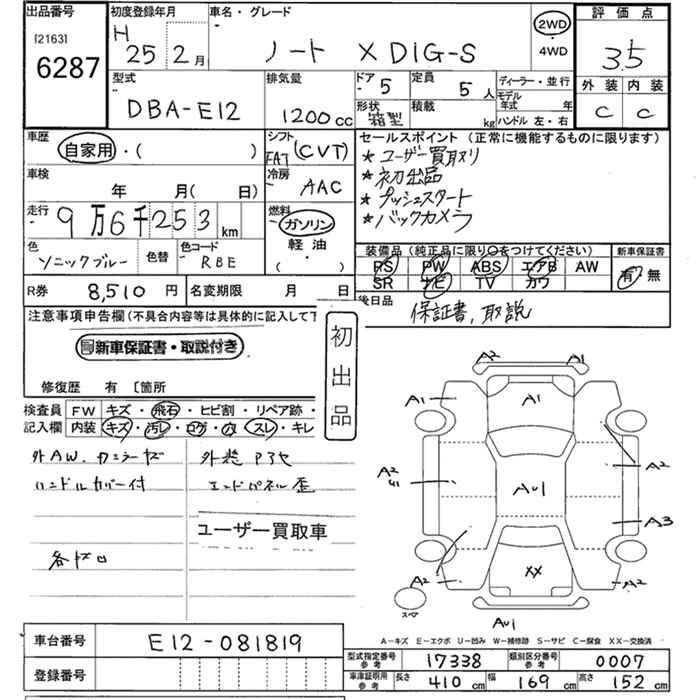 出品番号 初度登録年月 車名・グレード 評価点
[2163] 6287 H 25 2月 ノート X DIG-S 2WD ・4WD 3.5
型式 排気量 ドア 5 定員 5人 ディーラー・並行 外装 内装
DBA-E12 1200cc 形状 箱型 積載 kg モデル年式 年 ハンドル 左・右 C C
車歴 自家用・( ) シフト FAT (CVT) セールスポイント (正常に機能するものに限ります)
★ユーザー買取り
★初出品
★プッシュスタート
★バックカメラ
車検 年 月( 日) 冷房 AAC
走行 9万6千253km 燃料 ガソリン 軽油・ ( )
色 ソニックブルー 色替 色コード RBE
装備品 (純正品に限り○をつけてください) 新車保証書
PS PW ABS エアB AW 有・無
SR ナビ TV カワ
R券 8,510円 名変期限 月 日 後日品 保証書、取説
注意事項申告欄(不具合内容等は具体的に記入して下
新車保証書・取説付き
初出品
修復歴 有 〔箇所
検査員 FW キズ・飛石・ヒビ割・リペア跡・
記入欄 内装 キズ・汚レ・コゲ・穴・スレ・キレ
外AW. カニラーヤセ 外装
ハンドルカバー付 エンドパネル歪
ユーザー買取車
A2 A1
A1 A1
A2 A2
AU1
A3
A2 XX A2
スペア AU1
A−キズ E−エクボ U−凹み W−補修跡 S−サビ C−腐食 XX−交換済
車台番号 E12-081819
登録番号
型式指定番号 参考 17338 類別区分番号 参考 0007
車庫証明用 参考 長さ 410cm 幅 169cm 高さ 152cm